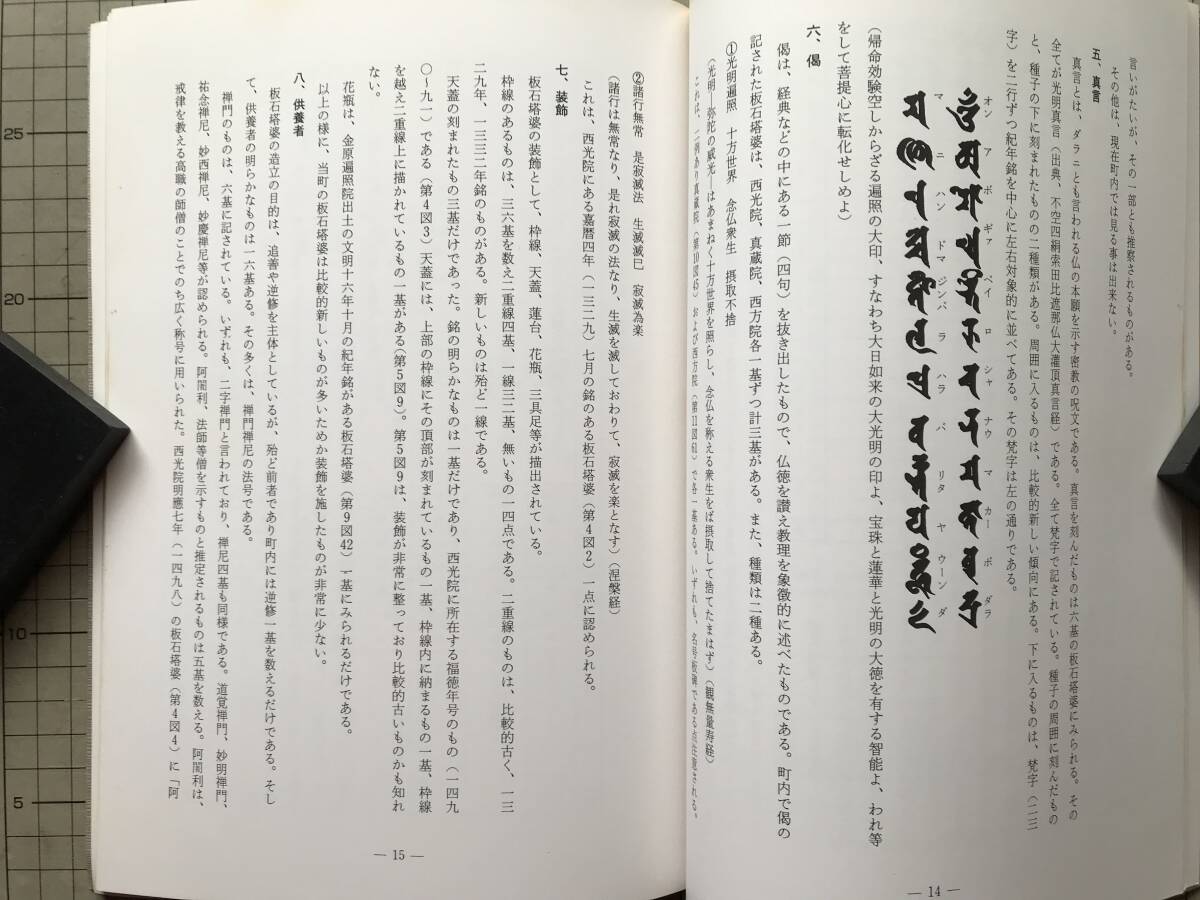 言いがたいが、その一部とも推察されるものがある。
その他は、現在町内では見る事は出来ない。
五、真言
真言とは、ダラニとも言われる仏の本願を示す密教の呪文である。真言を刻んだものは六基の板石塔婆にみられる。その
全てが光明真言(出典、不空四絹索田比遮那仏大灌頂真言経)である。全て梵字で記されている。種子の周囲に刻んだもの
と、種子の下に刻まれたものの二種類がある。周囲に入るものは、比較的新しい傾向にある。下に入るものは、梵字(二三
梵字)を二行ずつ紀年銘を中心に左右対象的に並べてある。その梵字は左の通りである。
オン ア ボ ギァ ベイ ロ シャ ナウ マ カー ボ ダラ
マ ニ ハン ドマ ジンバ ラ ハラ バ リタ ヤ ウーン ダ
(帰命効験空しからざる遍照の大印、すなわち大日如来の大光明の印よ、宝珠と蓮華と光明の大徳を有する智能よ、われ等
をして菩提心に転化せしめよ)
六、偈
偈は、経典などの中にある一節(四句)を抜き出したもので、仏徳を讃え教理を象徴的に述べたものである。町内で偈の
記された板石塔婆は、西光院、真蔵院、西方院各一基ずつ計三基がある。また、種類は二種ある。
①光明遍照 十方世界 念仏衆生 摂取不捨
(光明―弥陀の威光―はあまねく十方世界を照らし、念仏を称える衆生をば摂取して捨てたまはず)(観無量寿経)
これは、二例あり真蔵院(第10図45)および西方院(第11図61)で各一基ある。いずれも、名号板碑である点注意される。
― 14 ―
②諸行無常 是寂滅法 生滅滅巳 寂滅為楽
(諸行は無常なり、是れ寂滅の法なり、生滅を滅しておわりて、寂滅を楽となす)(涅槃経)
これは、西光院にある嘉暦四年(一三二九)七月の銘のある板石塔婆(第4図2)一点に認められる。
七、装飾
板石塔婆の装飾として、枠線、天蓋、蓮台、花瓶、三具足等が描出されている。
枠線のあるものは、三六基を数え二重線四基、一線三二基、無いもの一四点である。二重線のものは、比較的古く、一三
二九年、一三三二年銘のものがある。新しいものは殆ど一線である。
天蓋の刻まれたもの三基だけであった。銘の明らかなものは一基だけであり、西光院に所在する福徳年号のもの(一四九
〇～九一)である(第4図3)天蓋には、上部の枠線にその頂部が刻まれているもの一基、枠線内に納まるもの一基、枠線
を越え二重線上に描かれているもの一基がある(第5図9)。第5図9は、装飾が非常に整っており比較的古いものかも知れ
ない。
花瓶は、金原遍照院出土の文明十六年十月の紀年銘がある板石塔婆(第9図42)一基にみられるだけである。
以上の様に、当町の板石塔婆は比較的新しいものが多いためか装飾を施したものが非常に少ない。
八、供養者
板石塔婆の造立の目的は、追善や逆修を主体としているが、殆ど前者であり町内には逆修一基を数えるだけである。そし
て、供養者の明らかなものは一六基ある。その多くは、禅門禅尼の法号である。
禅門のものは、六基に記されている。いずれも、二字禅門と言われており、禅尼四基も同様である。道覚禅門、妙明禅門、
祐念禅尼、妙西禅尼、妙慶禅尼等が認められる。阿闍利、法師等僧を示すものと推定されるものは五基を数える。阿闍利は、
戒律を教える高職の師僧のことでのち広く称号に用いられた。西光院明應七年(一四九八)の板石塔婆(第4図4)に「阿
― 15 ―
25
20
10
5